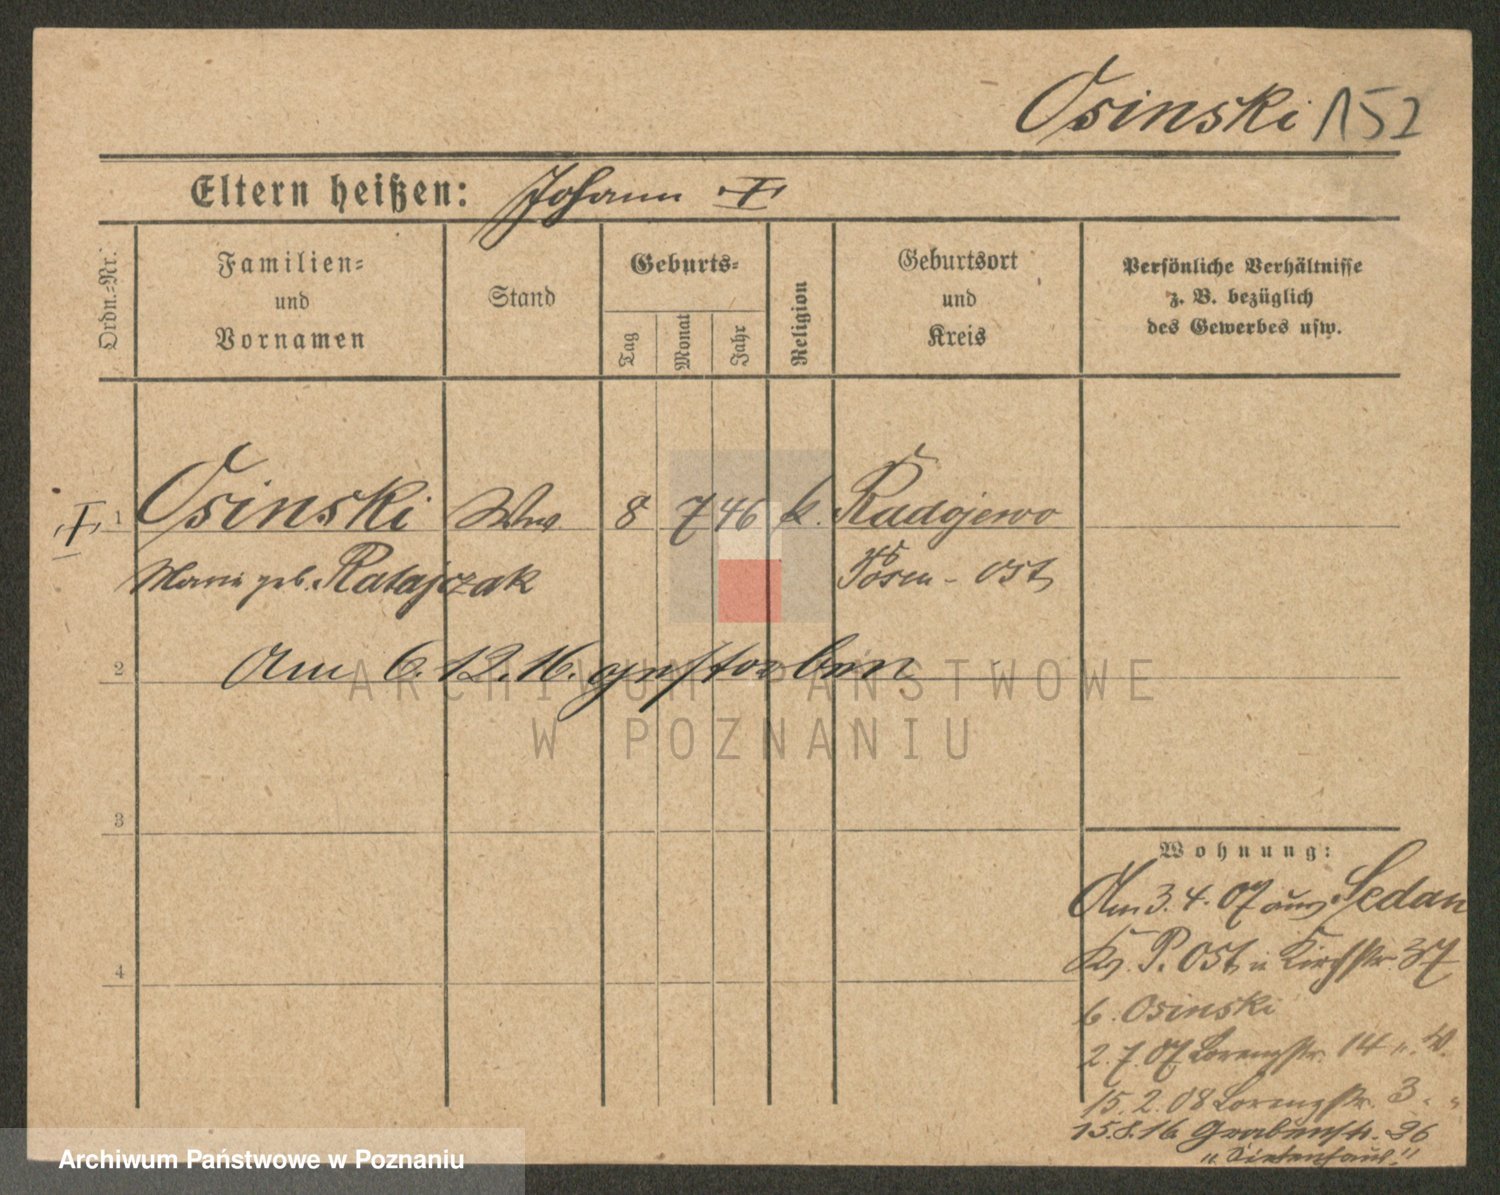 Osinski 152
Eltern heißen: Johann †
Ordn.-Nr.
Familien-
und
Vornamen
Stand
Geburts-
Tag
Monat
Jahr
Religion
Geburtsort
und
Kreis
Persönliche Verhältnisse
z. B. bezüglich
des Gewerbes usw.
† 1 Osinski Ww. 8 7 46 k. Radojewo
Marie geb. Ratajczak Posen - Ost
2 Am 6.12.16. gestorben
3
4
ARCHIWUM PAŃSTWOWE
W POZNANIU
Wohnung:
Am 3.4.07 aus Sedan
Kr. P. Ost n. Kirchstr. 37
b. Osinski
2.7.07 Lorenzstr. 14
15.2.08 Lorenzstr. 3.
15.8.16 Grabenstr. 26
Archiwum Państwowe w Poznaniu